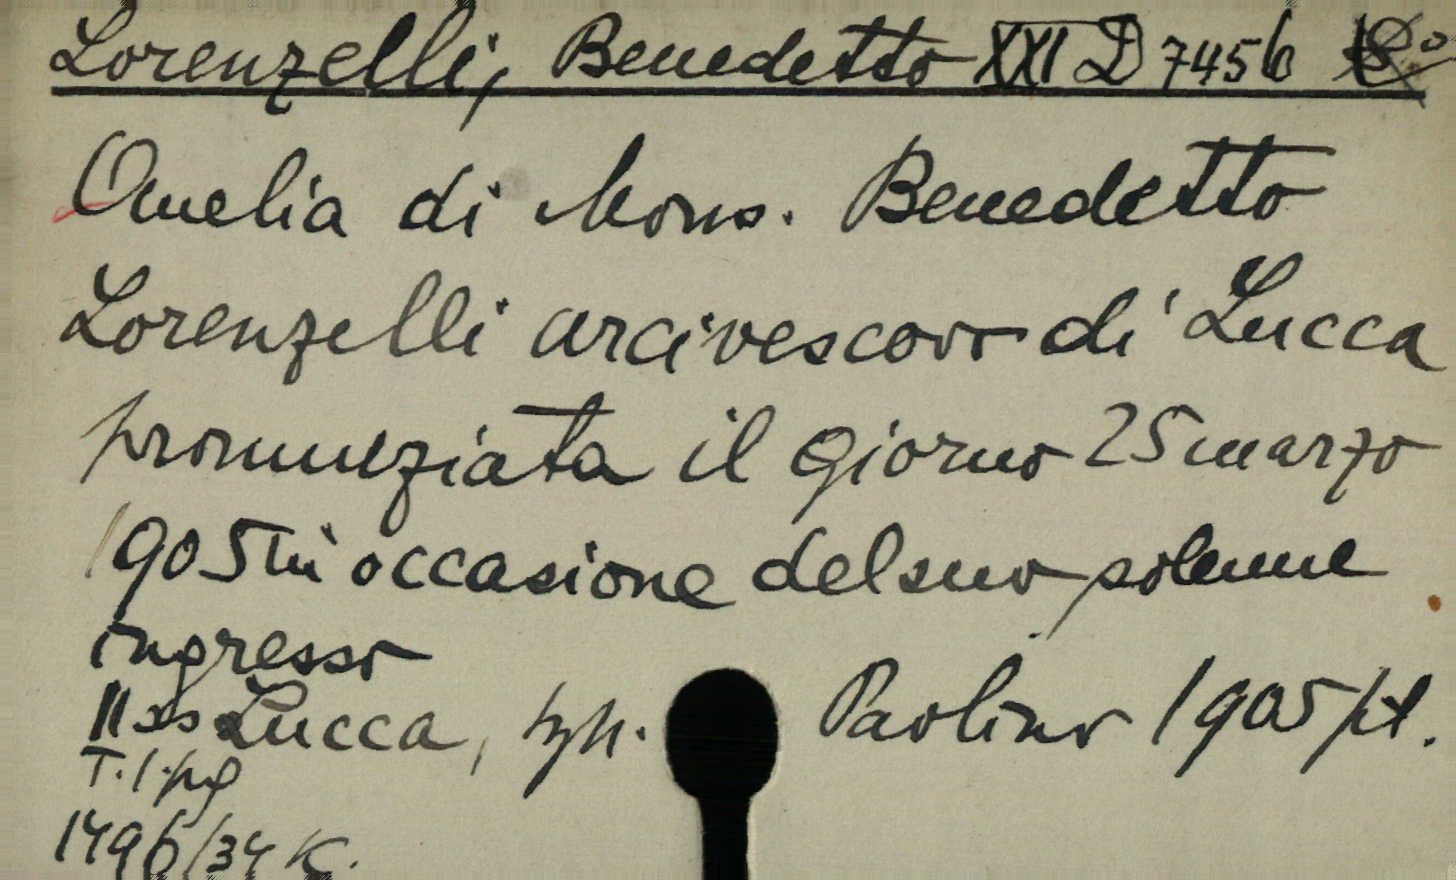 Lorenzelli, Benedetto XXI D 7456
Omelia di Mons. Benedetto
Lorenzelli arcivescovo di Lucca
pronunziata il giorno 25 marzo
1905 in occasione del suo solenne
ingresso
Lucca, typ. Paolino 1905 pt.
T. 1. pg
1496/34 K.